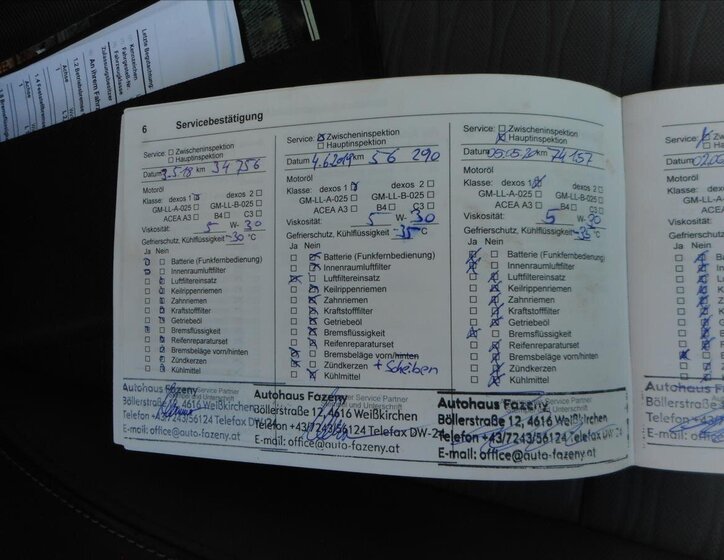 Letzte Begutachtung:
Kennzeichen
Fahrgestell-Nr.
Fahrzeugklasse
Zulassungsbesitzer
An Ihrem Fahr
1.2 Betriebsbremse
Achse
1.4 Feststellbremse
Achse
6 Servicebestätigung
Service: Zwischeninspektion
Hauptinspektion
Datum 3.5.18 km 34 756
Motoröl
Klasse: dexos 1 dexos 2
GM-LL-A-025 GM-LL-B-025
ACEA A3 B4 C3
Viskosität: 5 W- 30
Gefrierschutz, Kühlflüssigkeit -30 °C
Ja Nein
Batterie (Funkfernbedienung)
Innenraumluftfilter
Luftfiltereinsatz
Keilrippenriemen
Zahnriemen
Kraftstofffilter
Getriebeöl
Bremsflüssigkeit
Reifenreparaturset
Bremsbeläge vorn/hinten
Zündkerzen
Kühlmittel
Service Partner
Autohaus Fazeny
Böllerstraße 12, 4616 Weißkirchen
Telefon +43/7243/56124 Telefax DW-24
E-mail: office@auto-fazeny.at
Service: Zwischeninspektion
Hauptinspektion
Datum 4.6.2019 km 56 290
Motoröl
Klasse: dexos 1 dexos 2
GM-LL-A-025 GM-LL-B-025
ACEA A3 B4 C3
Viskosität: 5 W- 30
Gefrierschutz, Kühlflüssigkeit -35 °C
Ja Nein
Batterie (Funkfernbedienung)
Innenraumluftfilter
Luftfiltereinsatz
Keilrippenriemen
Zahnriemen
Kraftstofffilter
Getriebeöl
Bremsflüssigkeit
Reifenreparaturset
Bremsbeläge vorn/hinten
Zündkerzen + Scheiben
Kühlmittel
Service Partner
und Unterschrift
Autohaus Fazeny
Böllerstraße 12, 4616 Weißkirchen
Telefon +43/7243/56124 Telefax DW-24
E-mail: office@auto-fazeny.at
Service: Zwischeninspektion
Hauptinspektion
Datum 05.05.20 km 74 157
Motoröl
Klasse: dexos 1 dexos 2
GM-LL-A-025 GM-LL-B-025
ACEA A3 B4 C3
Viskosität: 5 W- 30
Gefrierschutz, Kühlflüssigkeit -35 °C
Ja Nein
Batterie (Funkfernbedienung)
Innenraumluftfilter
Luftfiltereinsatz
Keilrippenriemen
Zahnriemen
Kraftstofffilter
Getriebeöl
Bremsflüssigkeit
Reifenreparaturset
Bremsbeläge vorn/hinten
Zündkerzen
Kühlmittel
Service Partner
und Unterschrift
Autohaus Fazeny
Böllerstraße 12, 4616 Weißkirchen
Telefon +43/7243/56124 Telefax DW-24
E-mail: office@auto-fazeny.at
Service:
Datum
Motoröl
Klasse: dexos
GM-LL-A
ACEA
Viskosität:
Gefrierschutz,
Ja Nein
Autohaus
Böllerstraße
Telefon +43
E-mail: o